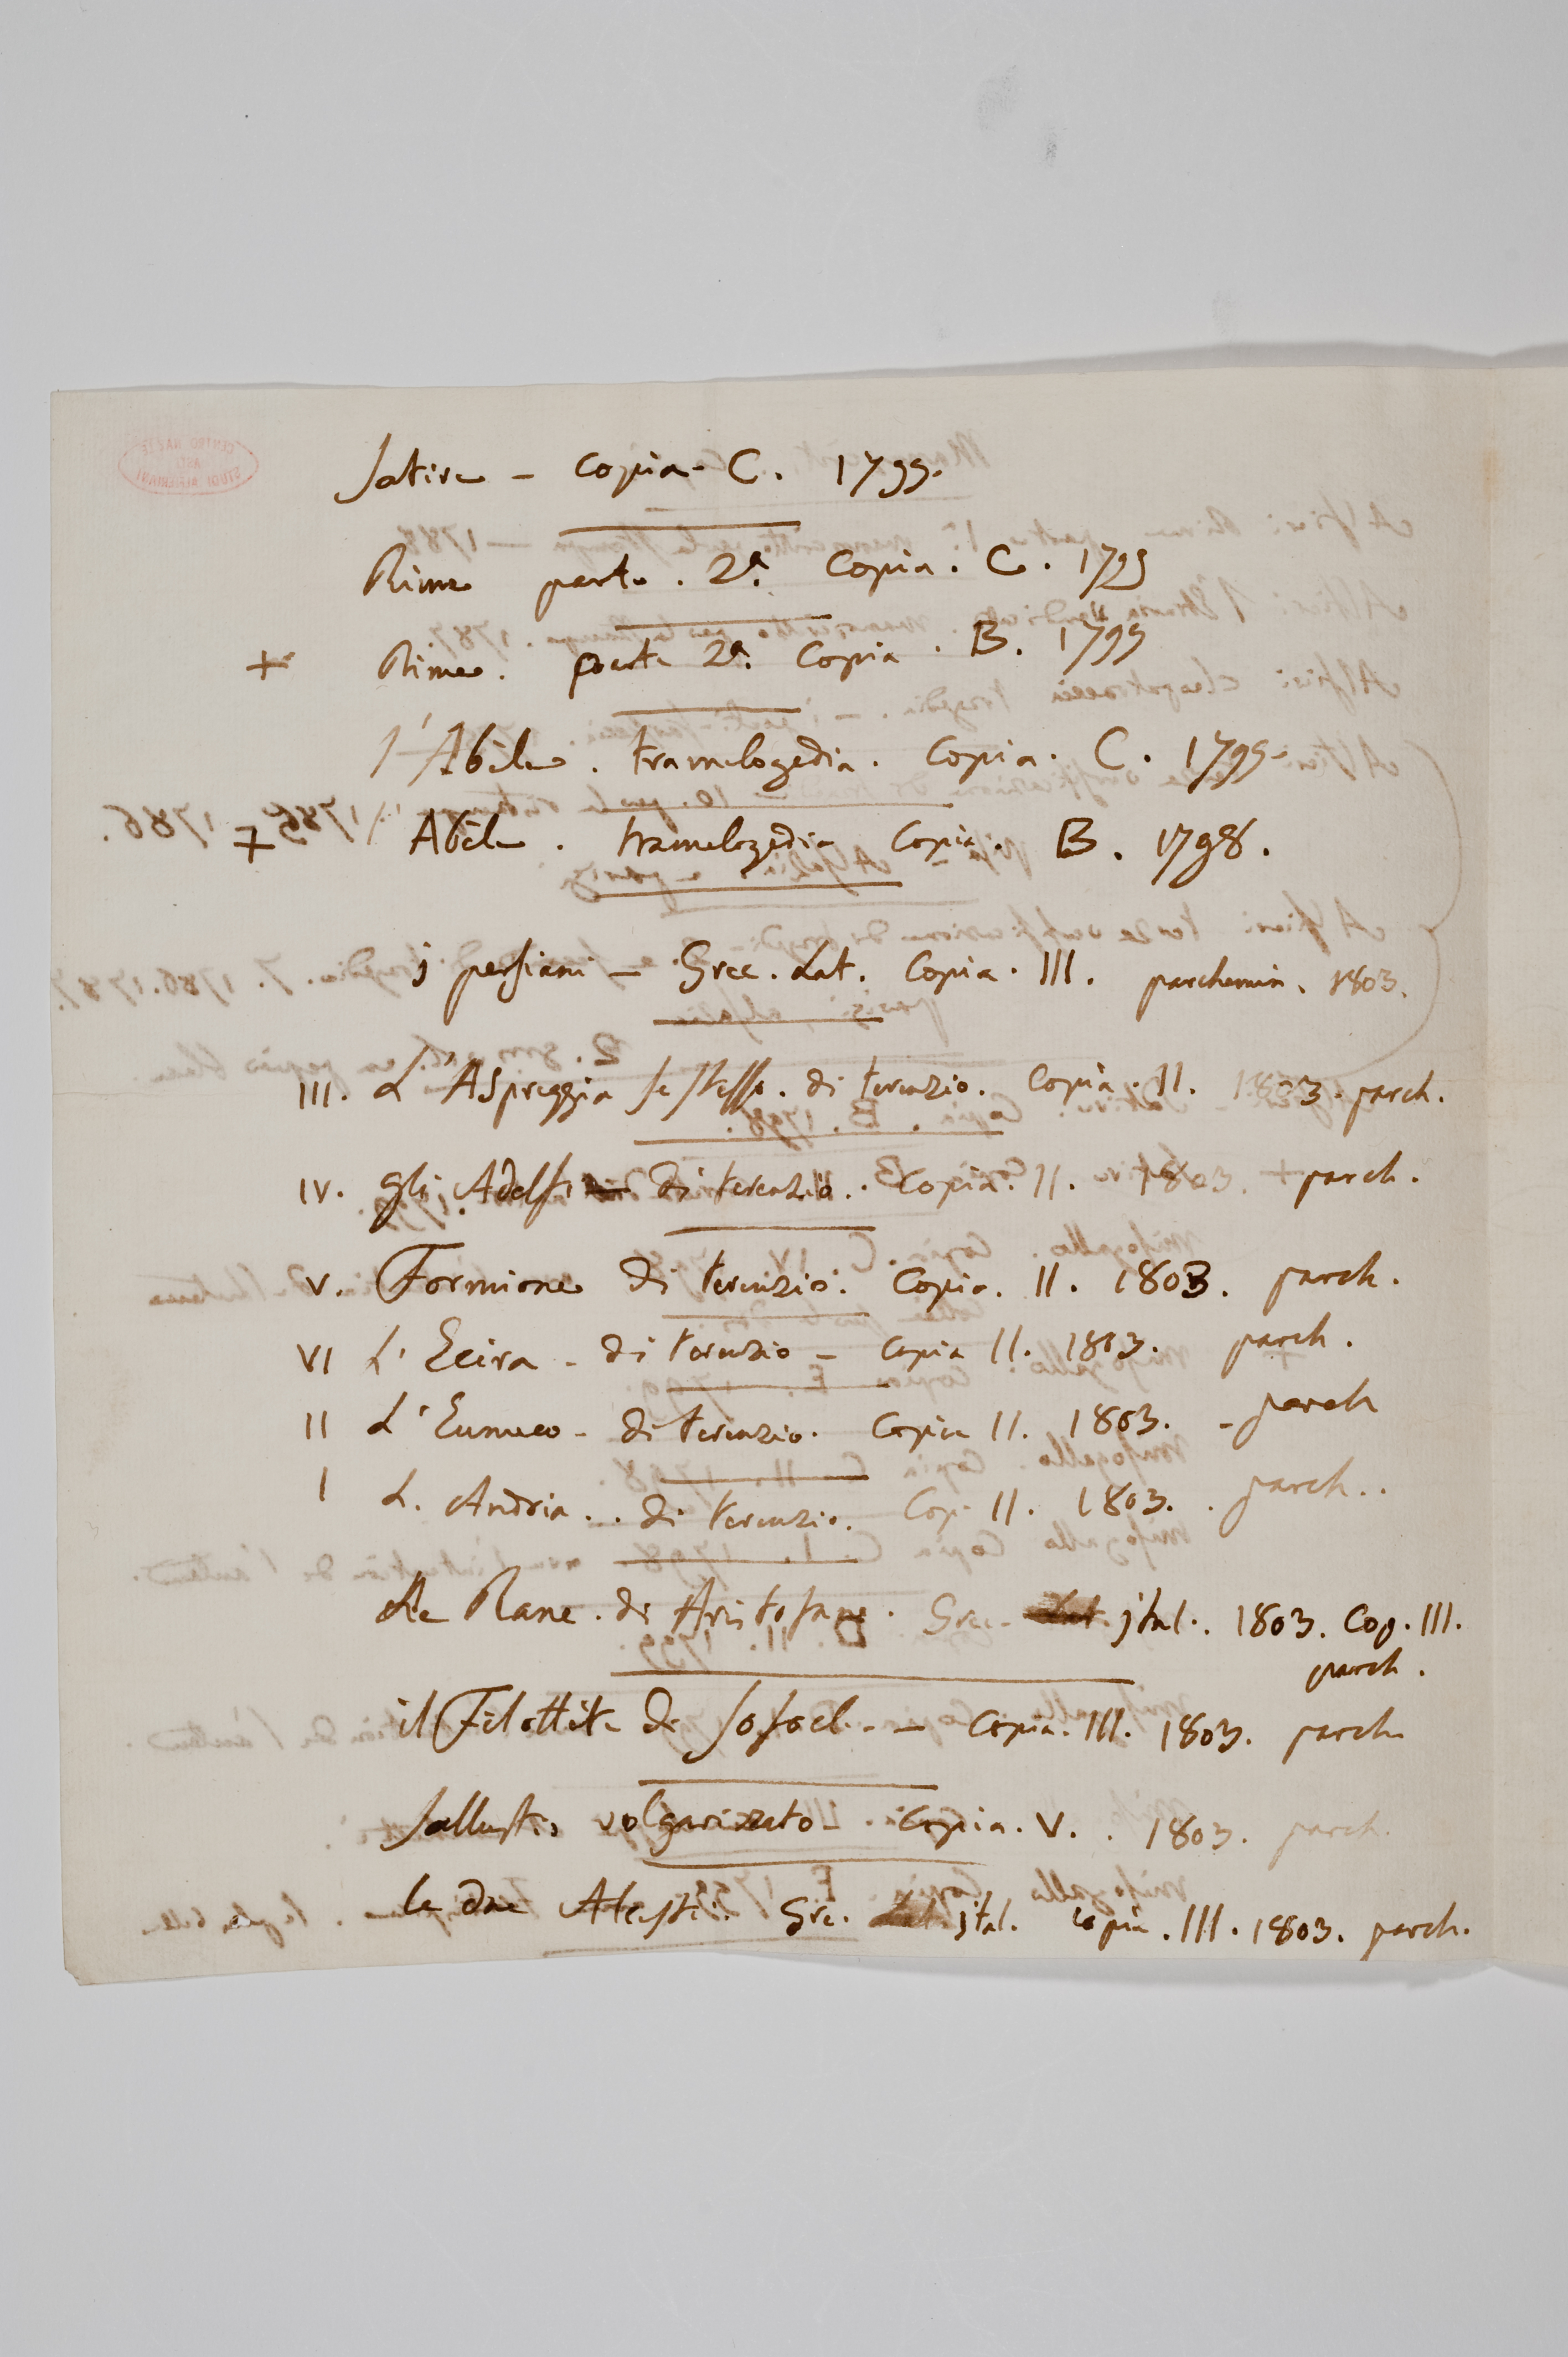 Satire - Copia - C. 1799.
Rime parte. 2ª. Copia. C. 1799
+ Rime. parte 2ª. Copia. B. 1799
l'Abele. tramelogedia. Copia. C. 1799-
+ Abele. tramelogedia Copia. B. 1798.
j persiani - Grec. Lat. Copia. III. parchemin. 1803.
III. L'Aspreggia se stesso. di terenzio. Copia. II. 1803. parch.
IV. Gli Adelfi di terenzio. Copia. II. 1803. parch.
V. Formione di terenzio. Copia. II. 1803. parch.
VI L'Ecira - di terenzio - Copia II. 1803. parch.
II L'Eunuco - di terenzio. Copia II. 1803. - parch
I L. Andria.. di terenzio. Cop. II. 1803.. parch..
Le Rane. di Aristofane. Grec- jtal.. 1803. Cop. III.
parch.
il Filottete di Sofocl. - Copia. III. 1803. parch
Sallustio volgarizzato -. Copia. V.. 1803. parch.
le due Alcesti. Gre. jtal. copia. III. 1803. parch.